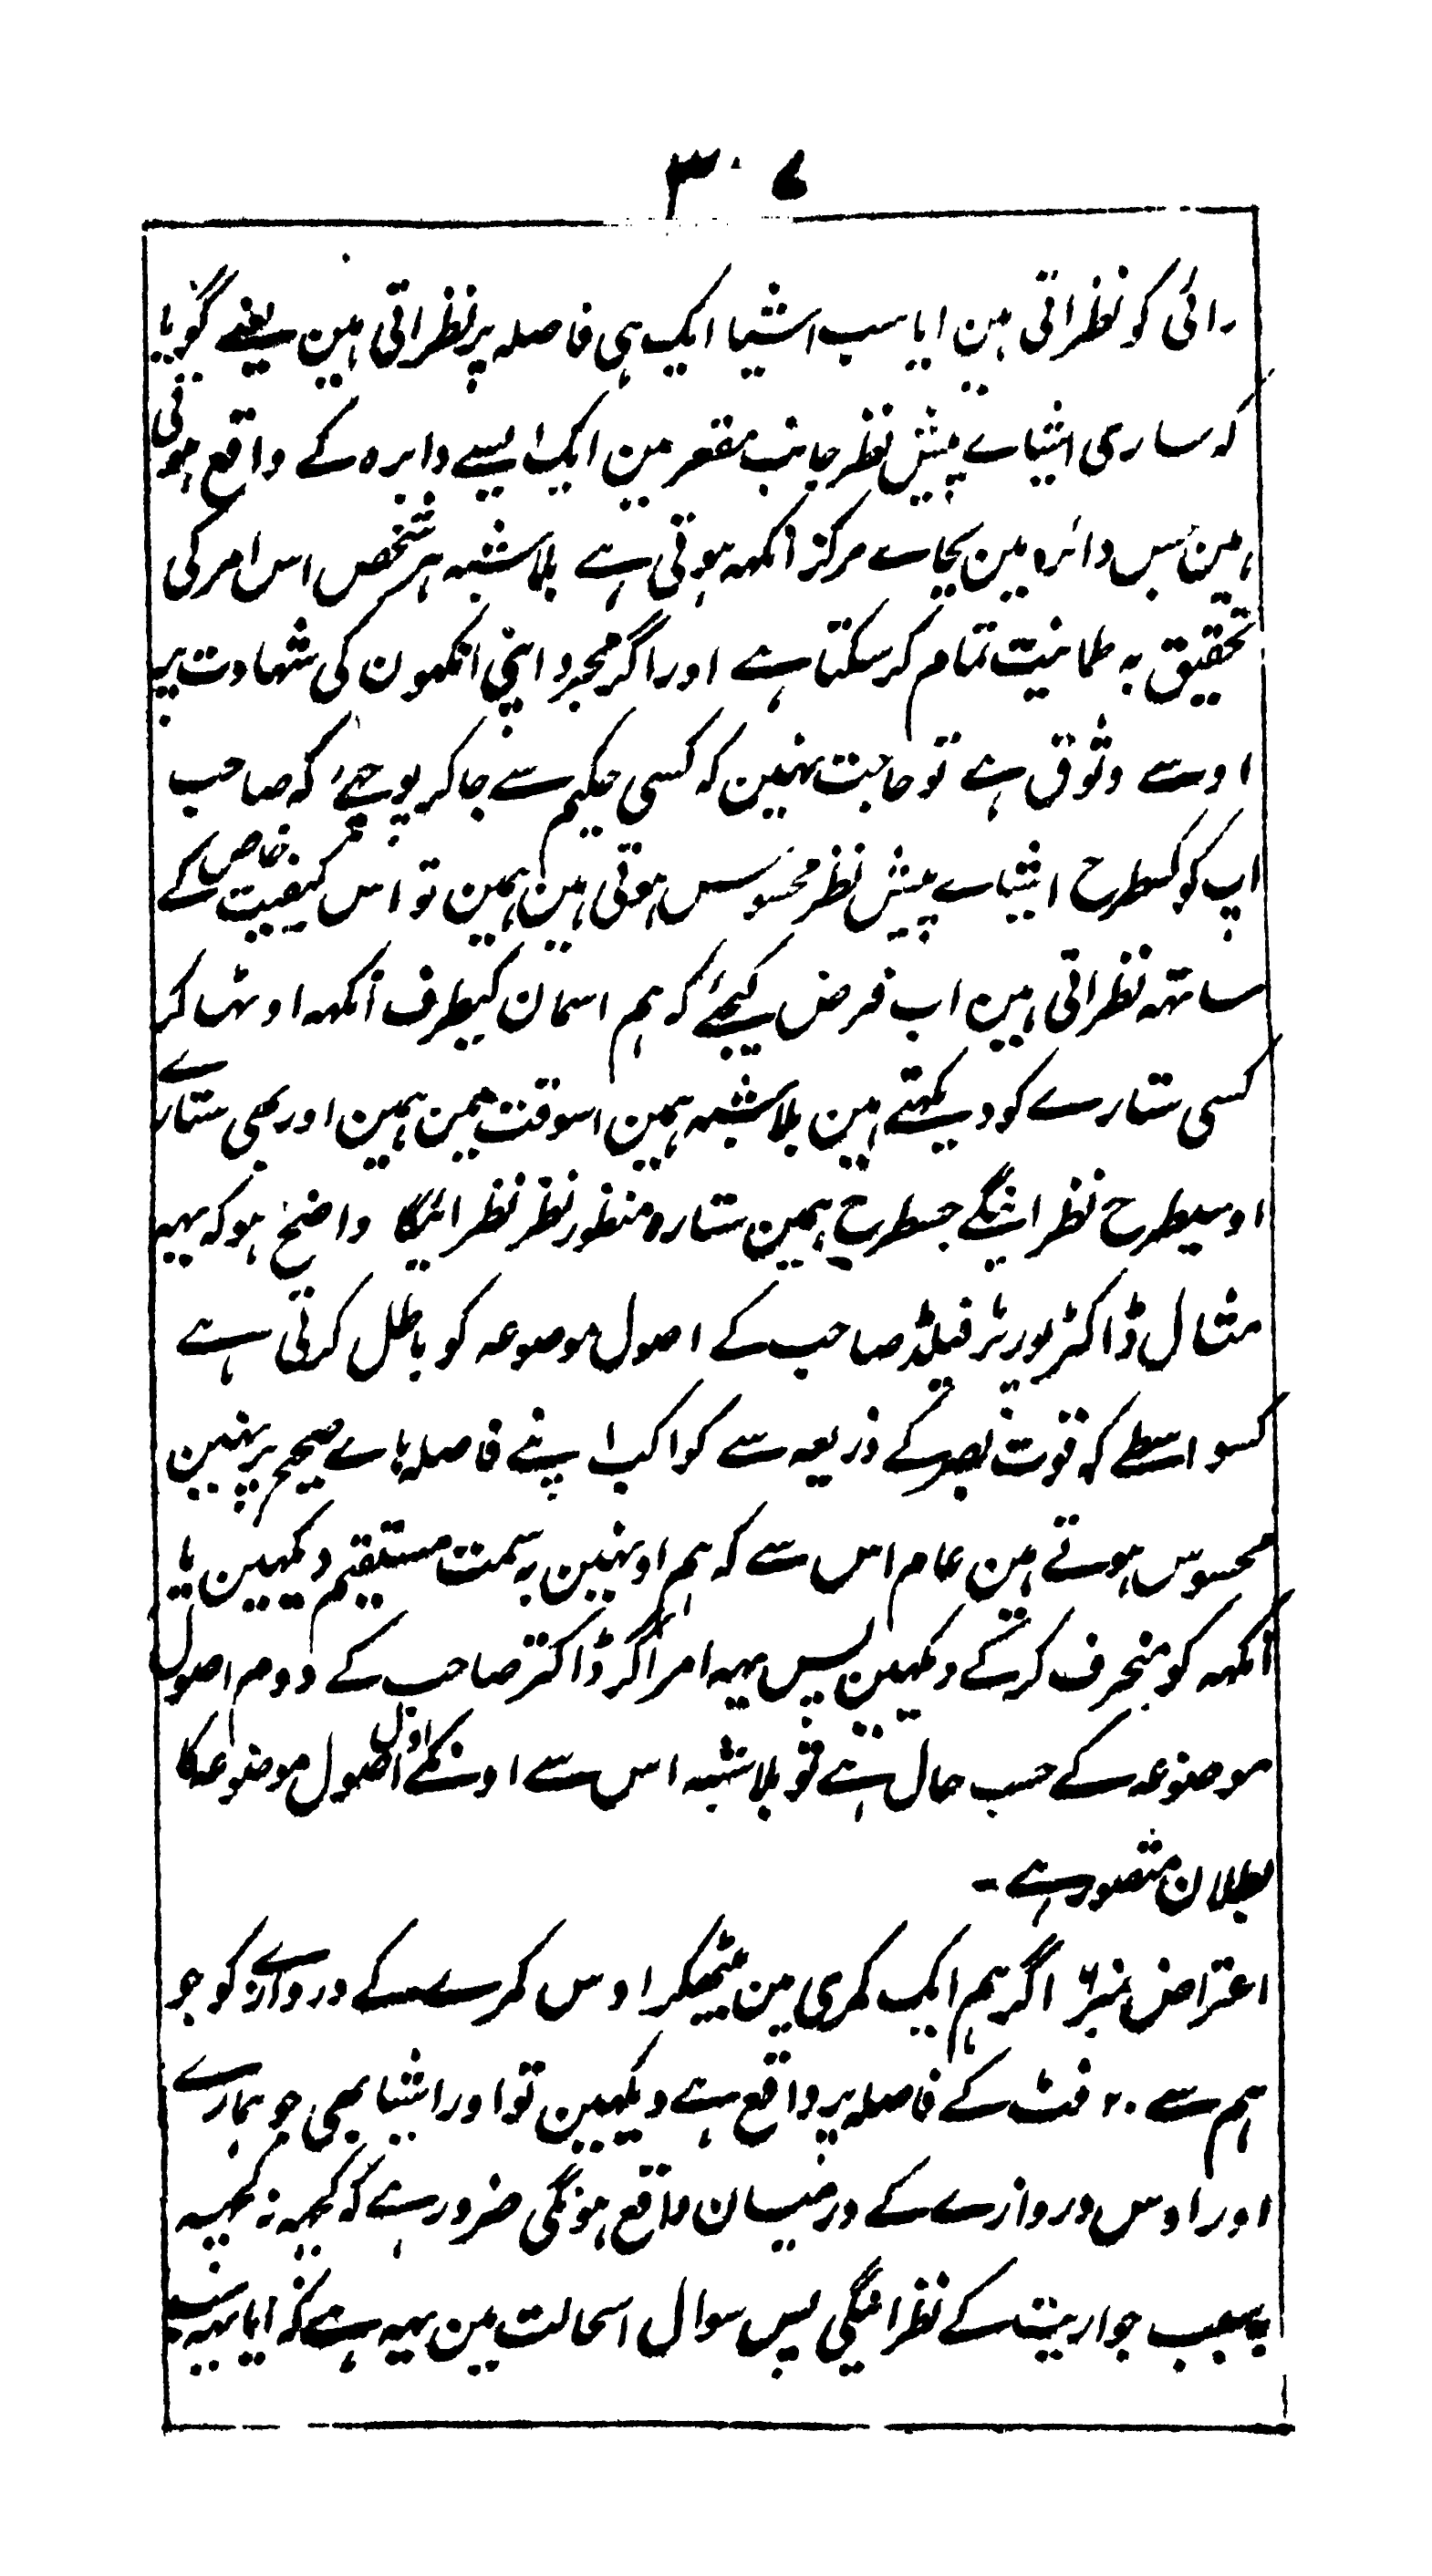 ۳۰۷
رائی کو نظر اتی ہین ایا سب اشیا ایک ہی فاصلہ پر نظر اتی ہین یعنے گویا
کہ ساری اشیاے پیش نظر جانب مقعر مین ایک ایسے دایرہ کے واقع ہوتی
ہین جس دائرہ مین بجاے مرکز انکہہ ہوتی ہے بلا شبہہ ہر شخص اس امر کی
تحقیق بہ طمانیت تمام کر سکتا ہے اور اگر مجرد اپنی انکہون کی شہادت پر
اوسے وثوق ہے تو حاجت نہین کہ کسی حکیم سے جا کر پوچھے کہ صاحب
اپ کو کسطرح اشیاے پیش نظر محسوس ہوتی ہین ہمین تو اس کیفیت خاص کے
ساتہہ نظر اتی ہین اب فرض کیجئے کہ ہم اسمان کیطرف انکہہ اوٹہا کر
کسی ستارے کو دیکہتے ہین بلا شبہہ ہمین اسوقت مین ہمین اور بھی ستارے
اوسیطرح نظر ائینگے جسطرح ہمین ستارہ منظور نظر نظر ائیگا واضح ہو کہ یہہ
مثال ڈاکٹر پورٹر فیلڈ صاحب کے اصول موضوعہ کو باطل کرتی ہے
کسواسطے کہ قوت بصر کے ذریعہ سے کواکب اپنے فاصلہ ہاے صحیح پر نہین
محسوس ہوتے ہین عام اس سے کہ ہم اونہین بہ سمت مستقیم دیکہین یا
انکہہ کو منحرف کر کے دیکہین پس یہہ امر اگر ڈاکتر صاحب کے دوم اصول
موضوعہ کے حسب حال ہے تو بلا شبہہ اس سے اونکے اول اصول موضوعہ کا
بطلان متصور ہے -
اعتراض نمبر ۶ اگر ہم ایک کمری مین بیٹھکر اوس کمرے کے دروازے کو جو
ہم سے ۲۰ فٹ کے فاصلہ پر واقع ہے دیکہین تو اور اشیا بھی جو ہمارے
اور اوس دروازے کے درمیان واقع ہونگی ضرور ہے کہ کچہہ نہ کچہہ
بسبب جواریت کے نظر ائینگی پس سوال اسحالت مین یہہ ہے کہ ایا یہہ سب